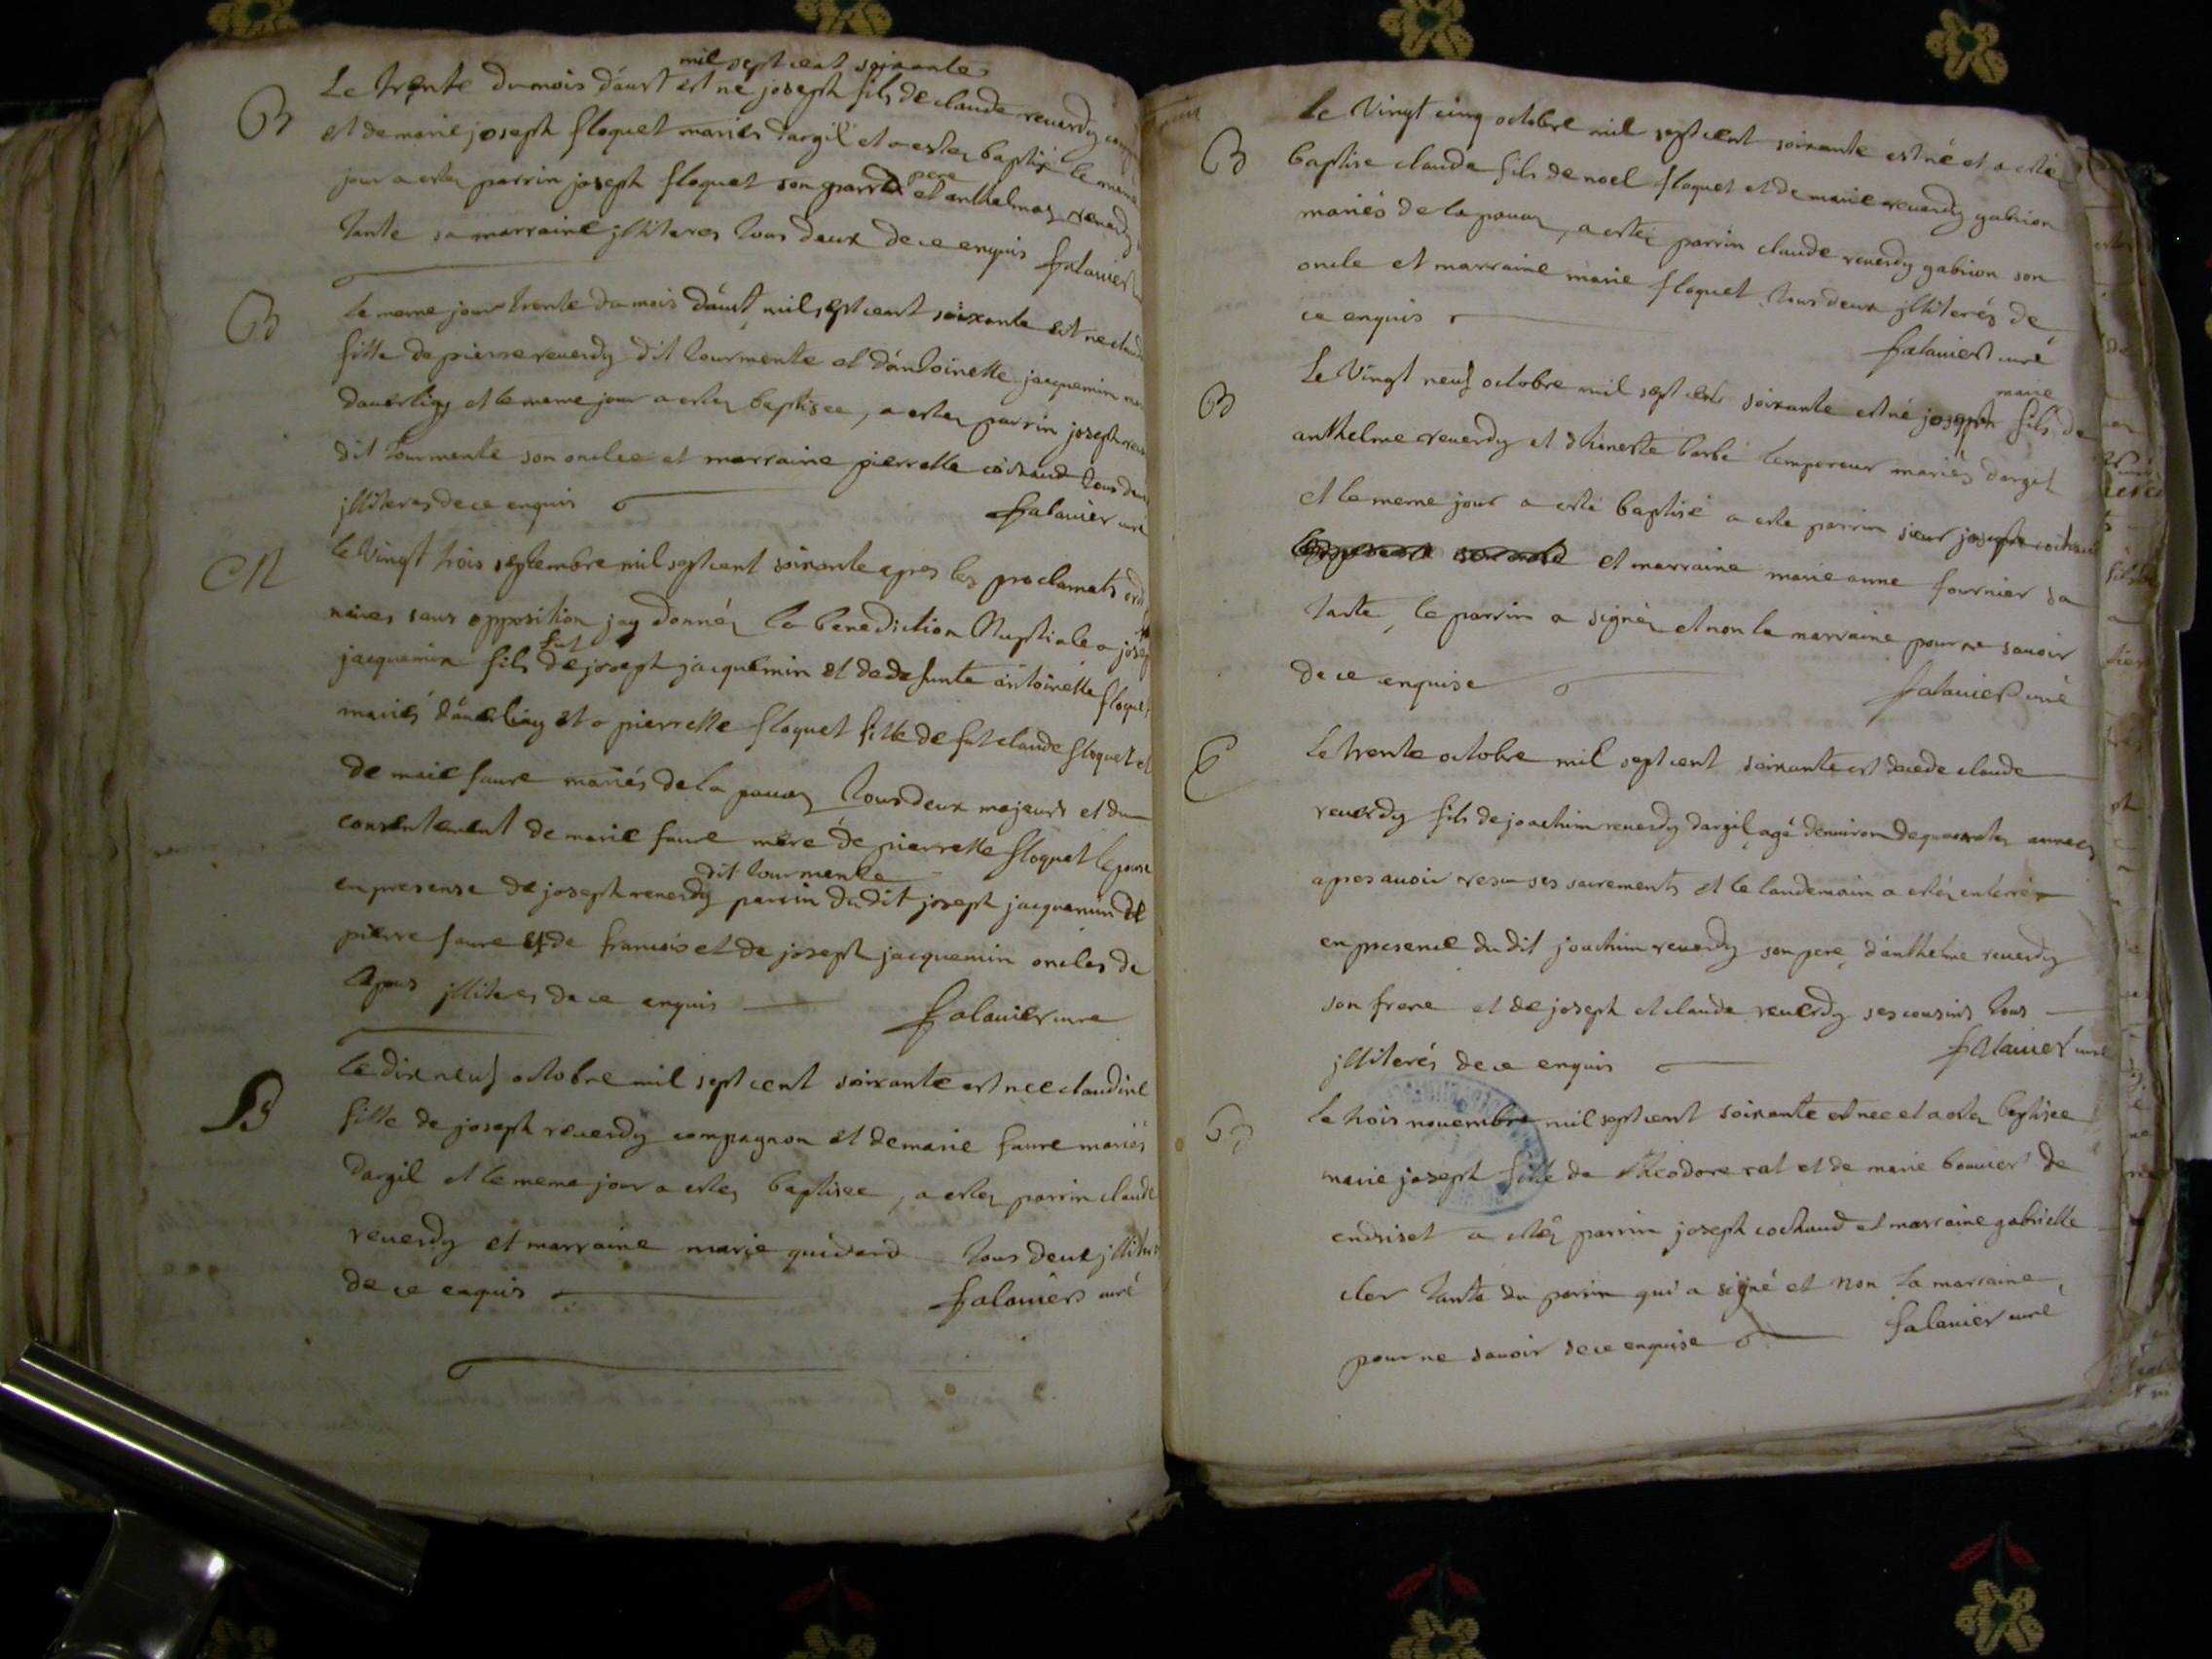 mil sept cent soixante
B Le trente du mois d'aust est né joseph fils de claude reuerdy
et de marie joseph floquet mariés dargil et a estez baptisé le meme
jour a estez parrin joseph floquet son grand pere et anthelmaz reuerdy
tante sa marraine jlliteres tous deux de ce enquis falauier
B le meme jour trente du mois d'aust mil sept cent soixante est ne
fille de pierre reuerdy dit tourmente et d'antoinette jacquemin
dauerliaz et le meme jour a estez baptisee, a estez parrin joseph
dit tourmente son oncle et marraine pierrette cochaud tous deux
jlliteres de ce enquis falauier curé
M le vingt trois septembre mil sept cent soixante apres les proclamats ordi
naires sans opposition jay donnéz la benediction Nuptiale a joseph
jacquemin fils de fut joseph jacquemin et de defunte antoinette floquet
mariés d'auerliaz et a pierrette floquet fille de fut claude floquet et
de marie faure mariés de la pauaz tous deux majeurs et du
consentement de marie faure mere de pierrette floquet
en presense de joseph reuerdy dit tourmente parrin du dit joseph jacquemin de
pierre faure et de francois et de joseph jacquemin oncles de
lepous jlliteres de ce enquis falauier cure
B le dix neuf octobre mil sept cent soixante est nee claudine
fille de joseph reuerdy compagnon et de marie faure mariés
dargil et le meme jour a estez baptisee, a estez parrin claude
reuerdy et marraine marie guidard tous deux jlliteres
de ce enquis falauier curé
B le Vingt cinq octobre mil sept cent soixante est né et a esté
baptise claude fils de noel floquet et de marie reuerdy gabrion
mariés de la pauaz, a estéz parrin claude reuerdy gabrion son
oncle et marraine marie floquet tous deux jlliterés de
ce enquis falauier curé
B Le Vingt neuf octobre mil sept cent soixante est né joseph marie fils de
anthelme reuerdy et d'honeste barbe lempereur mariés dargil
et le meme jour a esté baptisé a este parrin sieur joseph cochaud
et marraine marie anne fournier sa
tante, le parrin a signéz et non la marraine pour ne sauoir
de ce enquise falauier curé
E le trente octobre mil sept cent soixante est decede claude
reuerdy fils de joachim reuerdy dargil agé denuiron de quarantez annees
apres auoir resu ses sacrements et le landemain a estéz enterréz
en presence du dit joachim reuerdy son pere, d'anthelme reuerdy
son frere et de joseph et claude reuerdy ses cousins tous
jlliterés de ce enquis falauier curé
B le trois nouembre mil sept cent soixante est nee et a estez baptisee
marie joseph fille de theodore rat et de marie bouuier de
endriset a estéz parrin joseph cochaud et marraine gabrielle
cler tante du parrin qui a signé et non la marraine,
pour ne sauoir de ce enquise falauier curé